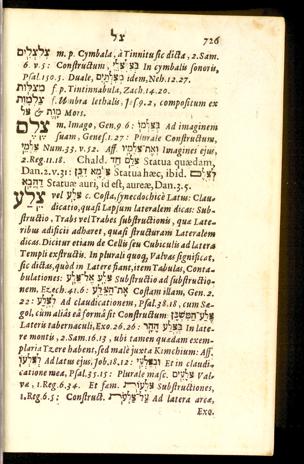 צל 726
צלצלים m. p. Cymbala, à Tinnitu sic dicta, 2. Sam.
6. v. 5: Constructum, In cymbalis sonoris,
Psal. 150. 5. Duale, idem, Neh. 12. 27.
מצלות f p. Tintinnabula, Zach. 14. 20.
צלמות f. Umbra lethalis, 9. 2, compositum ex
צל & מות Mors.
צלם m. Imago, Gen. 9 6: Ad imaginem
suam, Genes. 1. 27: Plurale Constructum,
צלמי Num. 33. v. 52. Aff Imagines ejus,
2. Reg. 11. 18. Chald. צלם חד Statua quædam,
Dan. 2. v. 31: Statua hæc, ibid.
Statuæ auri, id est, aureæ, Dan. 3. 5.
צלע vel c. Costa, synecdochicè Latus: Clau-
dicatio, quasi Lapsum lateralem dicas: Sub-
structio, Trabs vel Trabes substructionis, quæ Late-
ribus adificis adharet, quasi structuram Lateralem
dicas. Dicitur etiam de Cellis seu Cubiculis ad latera
Templi exstructis. In plurali quoq; Valvas significat,
sic dictas, quòd in Latere fiant, item Tabulas, Conta-
bulationes: צלע אל צלע Substructio ad substructio-
nem. Ezech. 41. 6: את הצלע Costam illam, Gen. 2.
22: לצלע Ad claudicationem, Psal. 38. 18, cum Se-
gol, cùm aliàs eâ formâ sit Constructum:
Lateris tabernaculi, Exo. 26. 26: בצלע ההר In late-
re montis, 2. Sam. 16. 13, ubi tamen quædam exem-
plaria Tzere habent, sed malè juxta Kimchium: Aff.
לצלעו Ad latus ejus, Job. 18. 12: ובצלעי Et in claudi-
catione mea, Psal. 35. 15: Plurale masc. צלעים Val-
væ, 1. Reg. 6. 34. Et fam. צלעות Substructiones,
1. Reg. 6. 5: Construct. Ad latera areæ,
Exo.